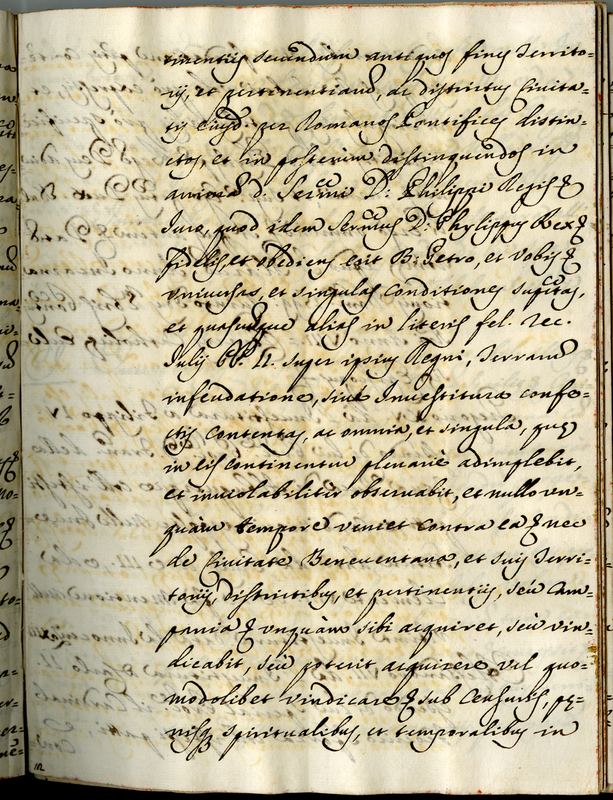 tinentijs secundum antiquos fines Territo=
rij, et pertinentiarũ, ac districtus Civita=
tis eiusd. per Romanos Pontifices distin=
ctos, et in posterum distinguendos in
animã d. Sermi D: Philippi Regis &
Juro, quod idem Sermus D: Phylippus Rex &
fidelis, et obediens erit B: Petro, et Vobis &
vniversas, et singulas conditiones supctas,
et quascunque alias in literis fel. rec.
Julij PP. II. super ipsius Regni, Terrarũ
infeudatione, sive Investitura confe=
ctis contentas, ac omnia, et singula, quę
in eis continentur plenariè adimplebit,
et inviolabiliter observabit, et nullo vn=
quàm tempore veniet contra ea & nec
de Civitate Beneventana, et suis Terri=
torijs, districtibus, et pertinentijs, seù Cam=
pania & vnquàm sibi acquiret, seù vin=
dicabit, seù poterit acquirere vel quo=
modolibet vindicare & sub Censuris, pę=
nisq; spiritualibus, et temporalibus in